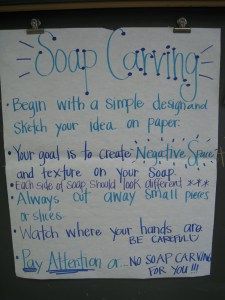 Soap Carving
• Begin with a simple design and
sketch your idea on paper.
• Your goal is to create Negative Space
and texture on your soap.
• Each side of soap should look different ***
• Always cut away small pieces
or slices.
• Watch where your hands are.
BE CAREFUL
• Pay Attention or... NO SOAP CARVING
FOR YOU!!!